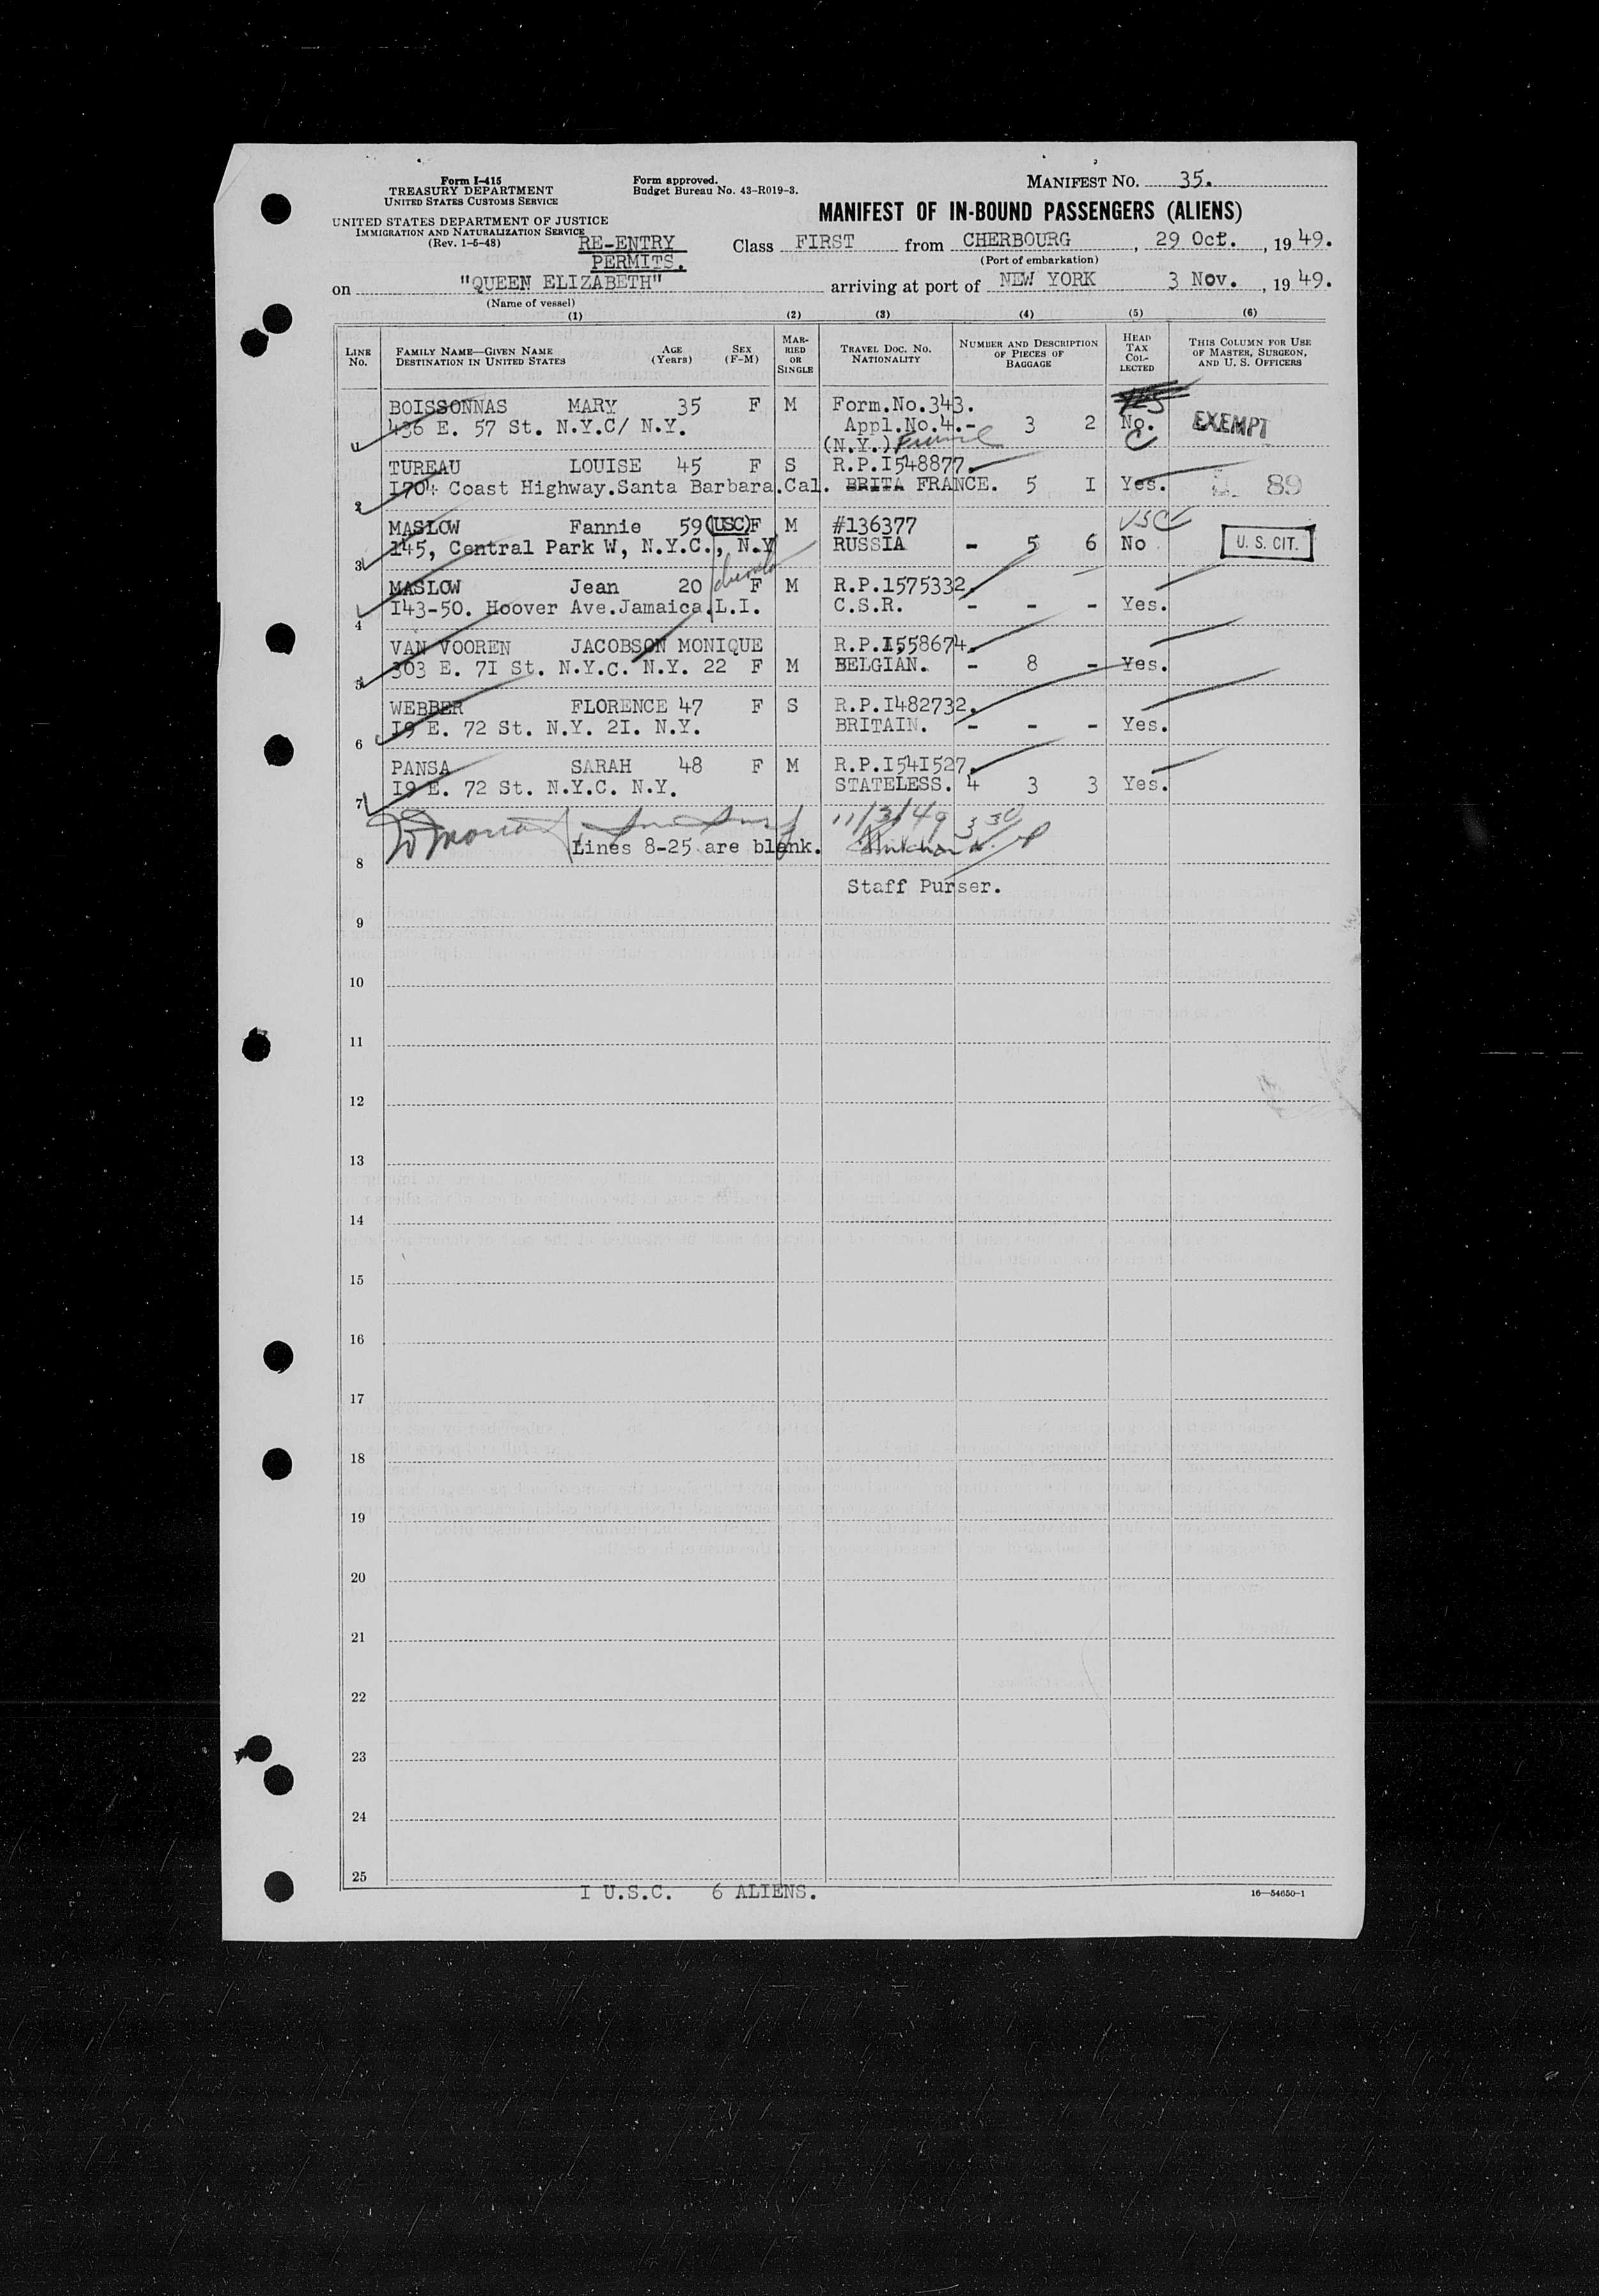 Form I-415
TREASURY DEPARTMENT
UNITED STATES CUSTOMS SERVICE
UNITED STATES DEPARTMENT OF JUSTICE
IMMIGRATION AND NATURALIZATION SERVICE
(Rev. 1-5-48)
Form approved.
Budget Bureau No. 43-R019-3.
MANIFEST NO. 35.
MANIFEST OF IN-BOUND PASSENGERS (ALIENS)
RE-ENTRY
PERMITS.
Class FIRST from CHERBOURG, 29 Oct., 1949.
(Port of embarkation)
on "QUEEN ELIZABETH" arriving at port of NEW YORK 3 Nov., 1949.
(Name of vessel)
(1) (2) (3) (4) (5) (6)
LINE NO.
FAMILY NAME—GIVEN NAME
DESTINATION IN UNITED STATES
AGE (Years)
SEX (F-M)
MARRIED OR SINGLE
TRAVEL DOC. NO. NATIONALITY
NUMBER AND DESCRIPTION OF PIECES OF BAGGAGE
HEAD TAX COLLECTED
THIS COLUMN FOR USE OF MASTER, SURGEON, AND U. S. OFFICERS
BOISSONNAS MARY 35 F M Form.No.343.
436 E. 57 St. N.Y.C/ N.Y. Appl.No.4.- 3 2 No. EXEMPT
1 (N.Y.) C
TUREAU LOUISE 45 F S R.P.I548877.
I704 Coast Highway.Santa Barbara.Cal. BRITA FRANCE. 5 I Yes. 89
2
MASLOW Fannie 59 (USC) F M #136377 USC
145, Central Park W, N.Y.C., N.Y RUSSIA - 5 6 No U. S. CIT.
3
MASLOW Jean 20 F M R.P.1575332.
I43-50. Hoover Ave.Jamaica.L.I. C.S.R. - - - Yes.
4
VAN VOOREN JACOBSON MONIQUE R.P.I558674.
303 E. 7I St. N.Y.C. N.Y. 22 F M BELGIAN. - 8 - Yes.
5
WEBBER FLORENCE 47 F S R.P.I482732.
I9 E. 72 St. N.Y. 2I. N.Y. BRITAIN. - - - Yes.
6
PANSA SARAH 48 F M R.P.I54I527.
I9 E. 72 St. N.Y.C. N.Y. STATELESS. 4 3 3 Yes.
7
11/3/49 3 30
Lines 8-25 are blank.
8
Staff Purser.
9
10
11
12
13
14
15
16
17
18
19
20
21
22
23
24
25
I U.S.C. 6 ALIENS.
16—54650-1